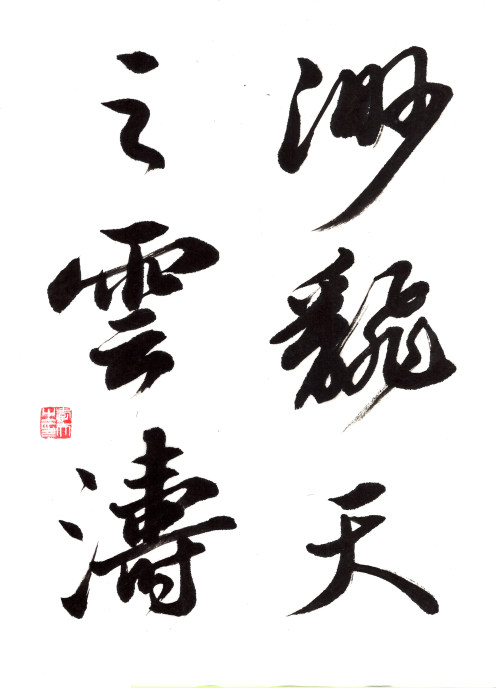 渺飜天
之雲濤